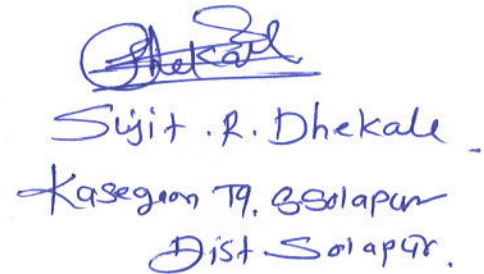 Dhekale
Sujit . R. Dhekale .
Kasegaon Tq. S.Solapur
Dist. Solapur.